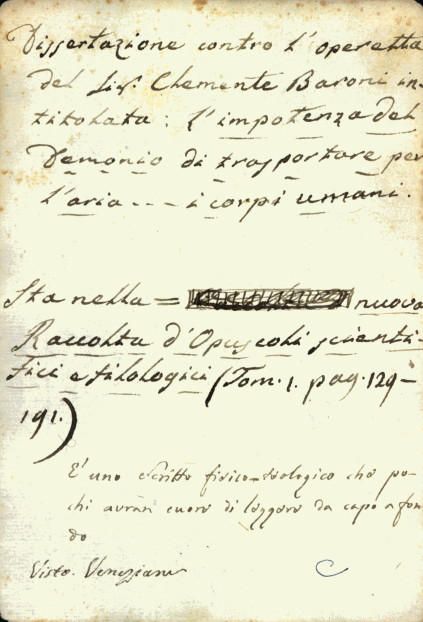 Dissertazione contro l'operetta
del Sigr. Clemente Baroni in-
titolata: l'impotenza del
Demonio di trasportare per
l'aria --- i corpi umani.
Sta nella = nuova
Raccolta d'Opuscoli scienti-
fici e filologici (Tom. 1. pag. 129-
191.)
E' uno scritto fisico-teologico che po-
chi avran cuore di leggere da capo a fon-
do
Visto. Veneziani